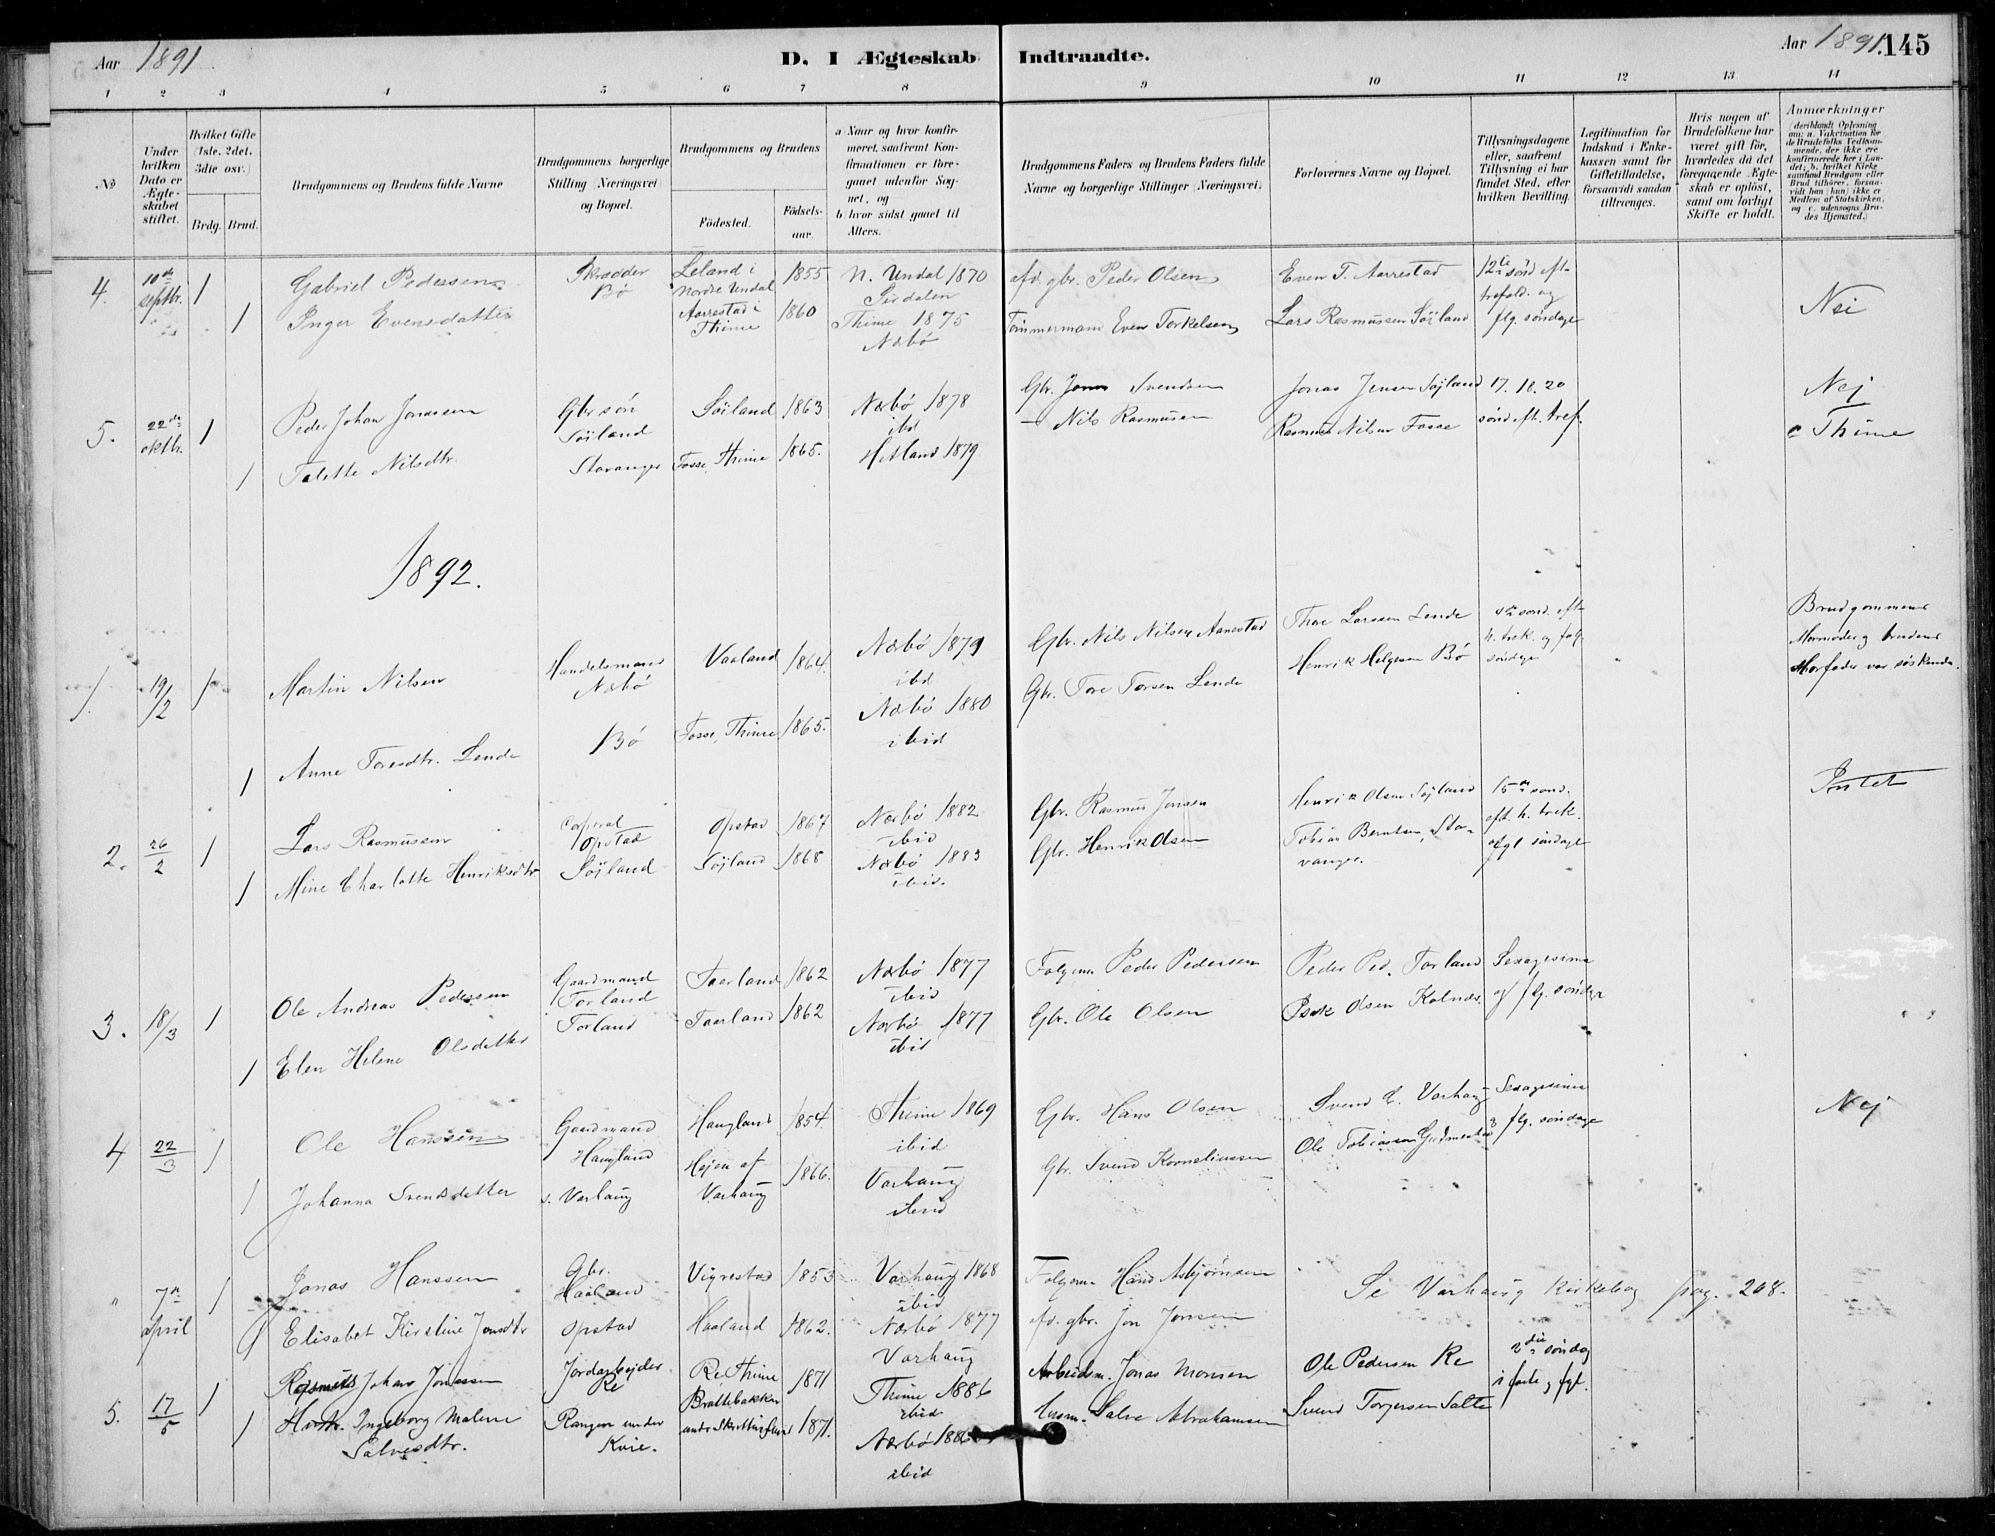 Aar 1891.
D. I Ægteskab Indtraadte.
Aar 1891. 145
1 2 3 4 5 6 7 8 9 10 11 12 13 14
No
Under hvilken Dato er Ægteskabet stiftet.
Hvilket Gifte (1ste, 2det, 3die osv.)
Brdg. Brud.
Brudgommens og Brudens fulde Navne
Brudgommens borgerlige Stilling (Næringsvei) og Bopæl.
Brudgommens og Brudens
Födested. Födselsaar.
a Naar og hvor konfirmeret, saafremt Konfirmationen er foregaaet udenfor Sognet, og
b hvor sidst gaaet til Alters.
Brudgommens Faders og Brudens Faders fulde Navne og borgerlige Stillinger (Næringsvei)
Forlovernes Navne og Bopæl.
Tillysningsdagene eller, saafremt Tillysning ei har fundet Sted, efter hvilken Bevilling.
Legitimation for Indskud i Enkekassen samt for Giftetilladelse, forsaavidt saadan tiltrænges.
Hvis nogen af Brudefolkene har været gift før, hvorledes da det foregaaende Ægteskab er oplöst, samt om lovligt Skifte er holdt.
Anmærkninger
(deriblandt Oplysning om: a. Vakcination for de Brudefolks Vedkommende, der ikke ere konfirmerede her i Landet; b. hvilket Kirkesamfund Brudgom eller Brud tilhører, forsaavidt han (hun) ikke er Medlem af Statskirken, og c. udensogns Brudes Hjemsted.)
4. 10de septbr. 1 Gabriel Pedersen Skrædder Bö Leland i Nordre Undal 1855 N. Undal 1870 Sirdalen fd. gbr. Peder Olsen Even T. Aarrestad 12te sönd eft. trefold. og flg. söndage Nei
1 Inger Evensdatter Aarrestad i Thime 1860 Thime 1875 Nærbö Tömmermand Even Torkelsen Lars Rasmussen Söiland
5. 22de oktbr. 1 Peder Johan Jonassen Gbr sön Söiland Söiland 1863 Nærbö 1878 ibd Gbr. Jonas Svendsen Jonas Jensen Söjland 17. 18. 20 sönd eft. tref. Nej
1 Talette Nilsdtr. Stavanger Fosse, Thime 1865. Hetland 1879 — Nils Rasmussen Rasmus Nilsen Fosse c Thime
1892.
1. 19/2 1 Martin Nilsen Handelsmand Nærbö Vaaland 1864. Nærbö 1879 ibd Gbr. Nils Nilsen Aanestad Thore Larssen Lende 4de sönd. eft. h. trek. og følg. söndage Brudgommens Mormoder og brudens Morfader var söskende.
1 Anne Toresdtr. Lende Bö Fosse, Thime 1865. Nærbö 1880 ibid Gbr. Tore Torsen Lende Henrik Helgesen Bö
2. 26/2 1 Lars Rasmussen Corporal Opstad Opstad 1867 Nærbö 1882 ibid Gbr. Rasmus Jensen Henrik Olsen Söjland 15de sönd. eft. h. trek. ofgl söndage Intet
1 Mine Charlotte Henriksdtr Söjland Söjland 1868 Nærbö 1883 ibid. Gbr. Henrik Olsen Tobias Berntsen, Stavanger.
3. 18/3 1 Ole Andreas Pedersen Gaardmand Torland Taarland 1862 Nærbö 1877 ibid Folgem. Peder Pedersen Peder Ped. Torland Sexagesima og flg. söndge
1 Elen Helene Olsdatter Torland Taarland 1862 Nærbö 1877 ibid Gbr. Ole Olsen Isak Olsen Kalnæs.
4 22/3 1 Ole Hanssen Gaardmand Haugland Haugland 1854. Thime 1869 ibid Gbr. Hans Olsen Svend E. Varhaug Sexagesima og flg. söndage Nej
1 Johanna Svensdatter s. Varhaug Höjen af Varhaug 1866. Varhaug ibid Gbr. Svend Korneliussen Ole Tobiassen
" 7de april 1 Jonas Hanssen Gbr. Haaland Vigrestad 1853 Varhaug 1868 ibid Folgem Hans Asbjörnsen Se Varhaug kirkebog pag. 208.
1 Elisabet Kirstine Jonsdtr Opstad Haaland 1862. Nærbö 1877 Varhaug fd. gbr. Jon Jonsen
5. 17/5 1 Rasmus Johan Jonassen Jordarbejder Re Re Thime 1871 Thime 1886 ibid Arbeidsm. Jonas Monsen Ole Pedersen Re 2die söndag i faste og fgl.
1 Ingeborg Malene Salvesdtr. Rangen under Kvie. Brattebakken 1871. Nærbö 1886 ibid Husm. Salve Abrahamsen Svend Torgersen Salte